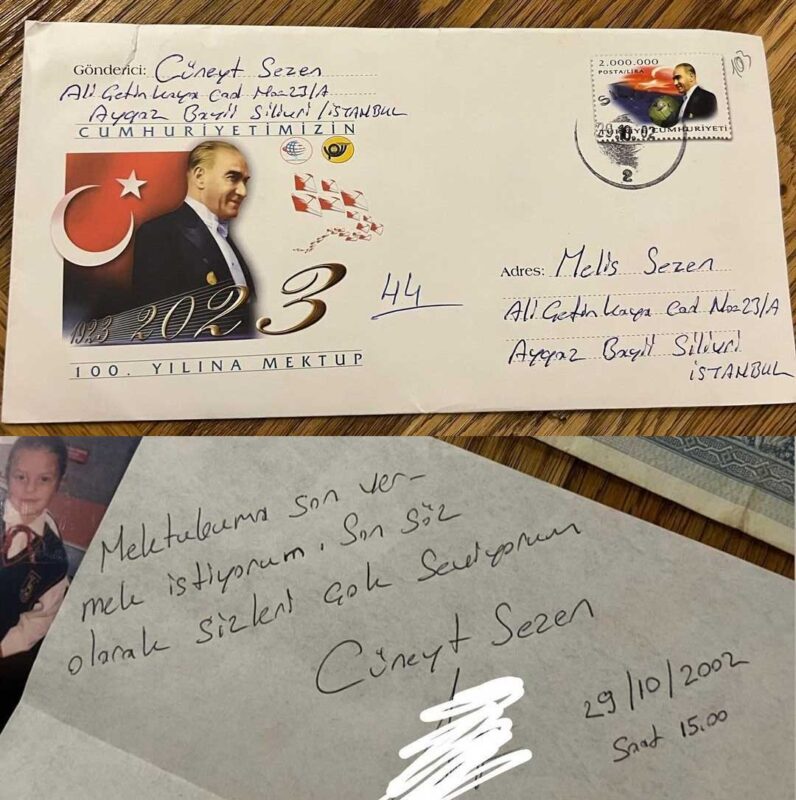 Gönderici: Cüneyt Sezen
Ali Çetinkaya Cad No=23/A
Aygaz Bayii Silivri / İSTANBUL
CUMHURİYETİMİZİN
1923 2023
100. YILINA MEKTUP
44
2.000.000
POSTA/LİRA
CUMHURİYETİ
29.10.02
2
103
Adres: Melis Sezen
Ali Çetinkaya Cad No=23/A
Aygaz Bayii Silivri
İSTANBUL
Mektubuma son ver-
mek istiyorum. Son söz
olarak sizleri çok seviyorum
Cüneyt Sezen
29/10/2002
Saat 15.00